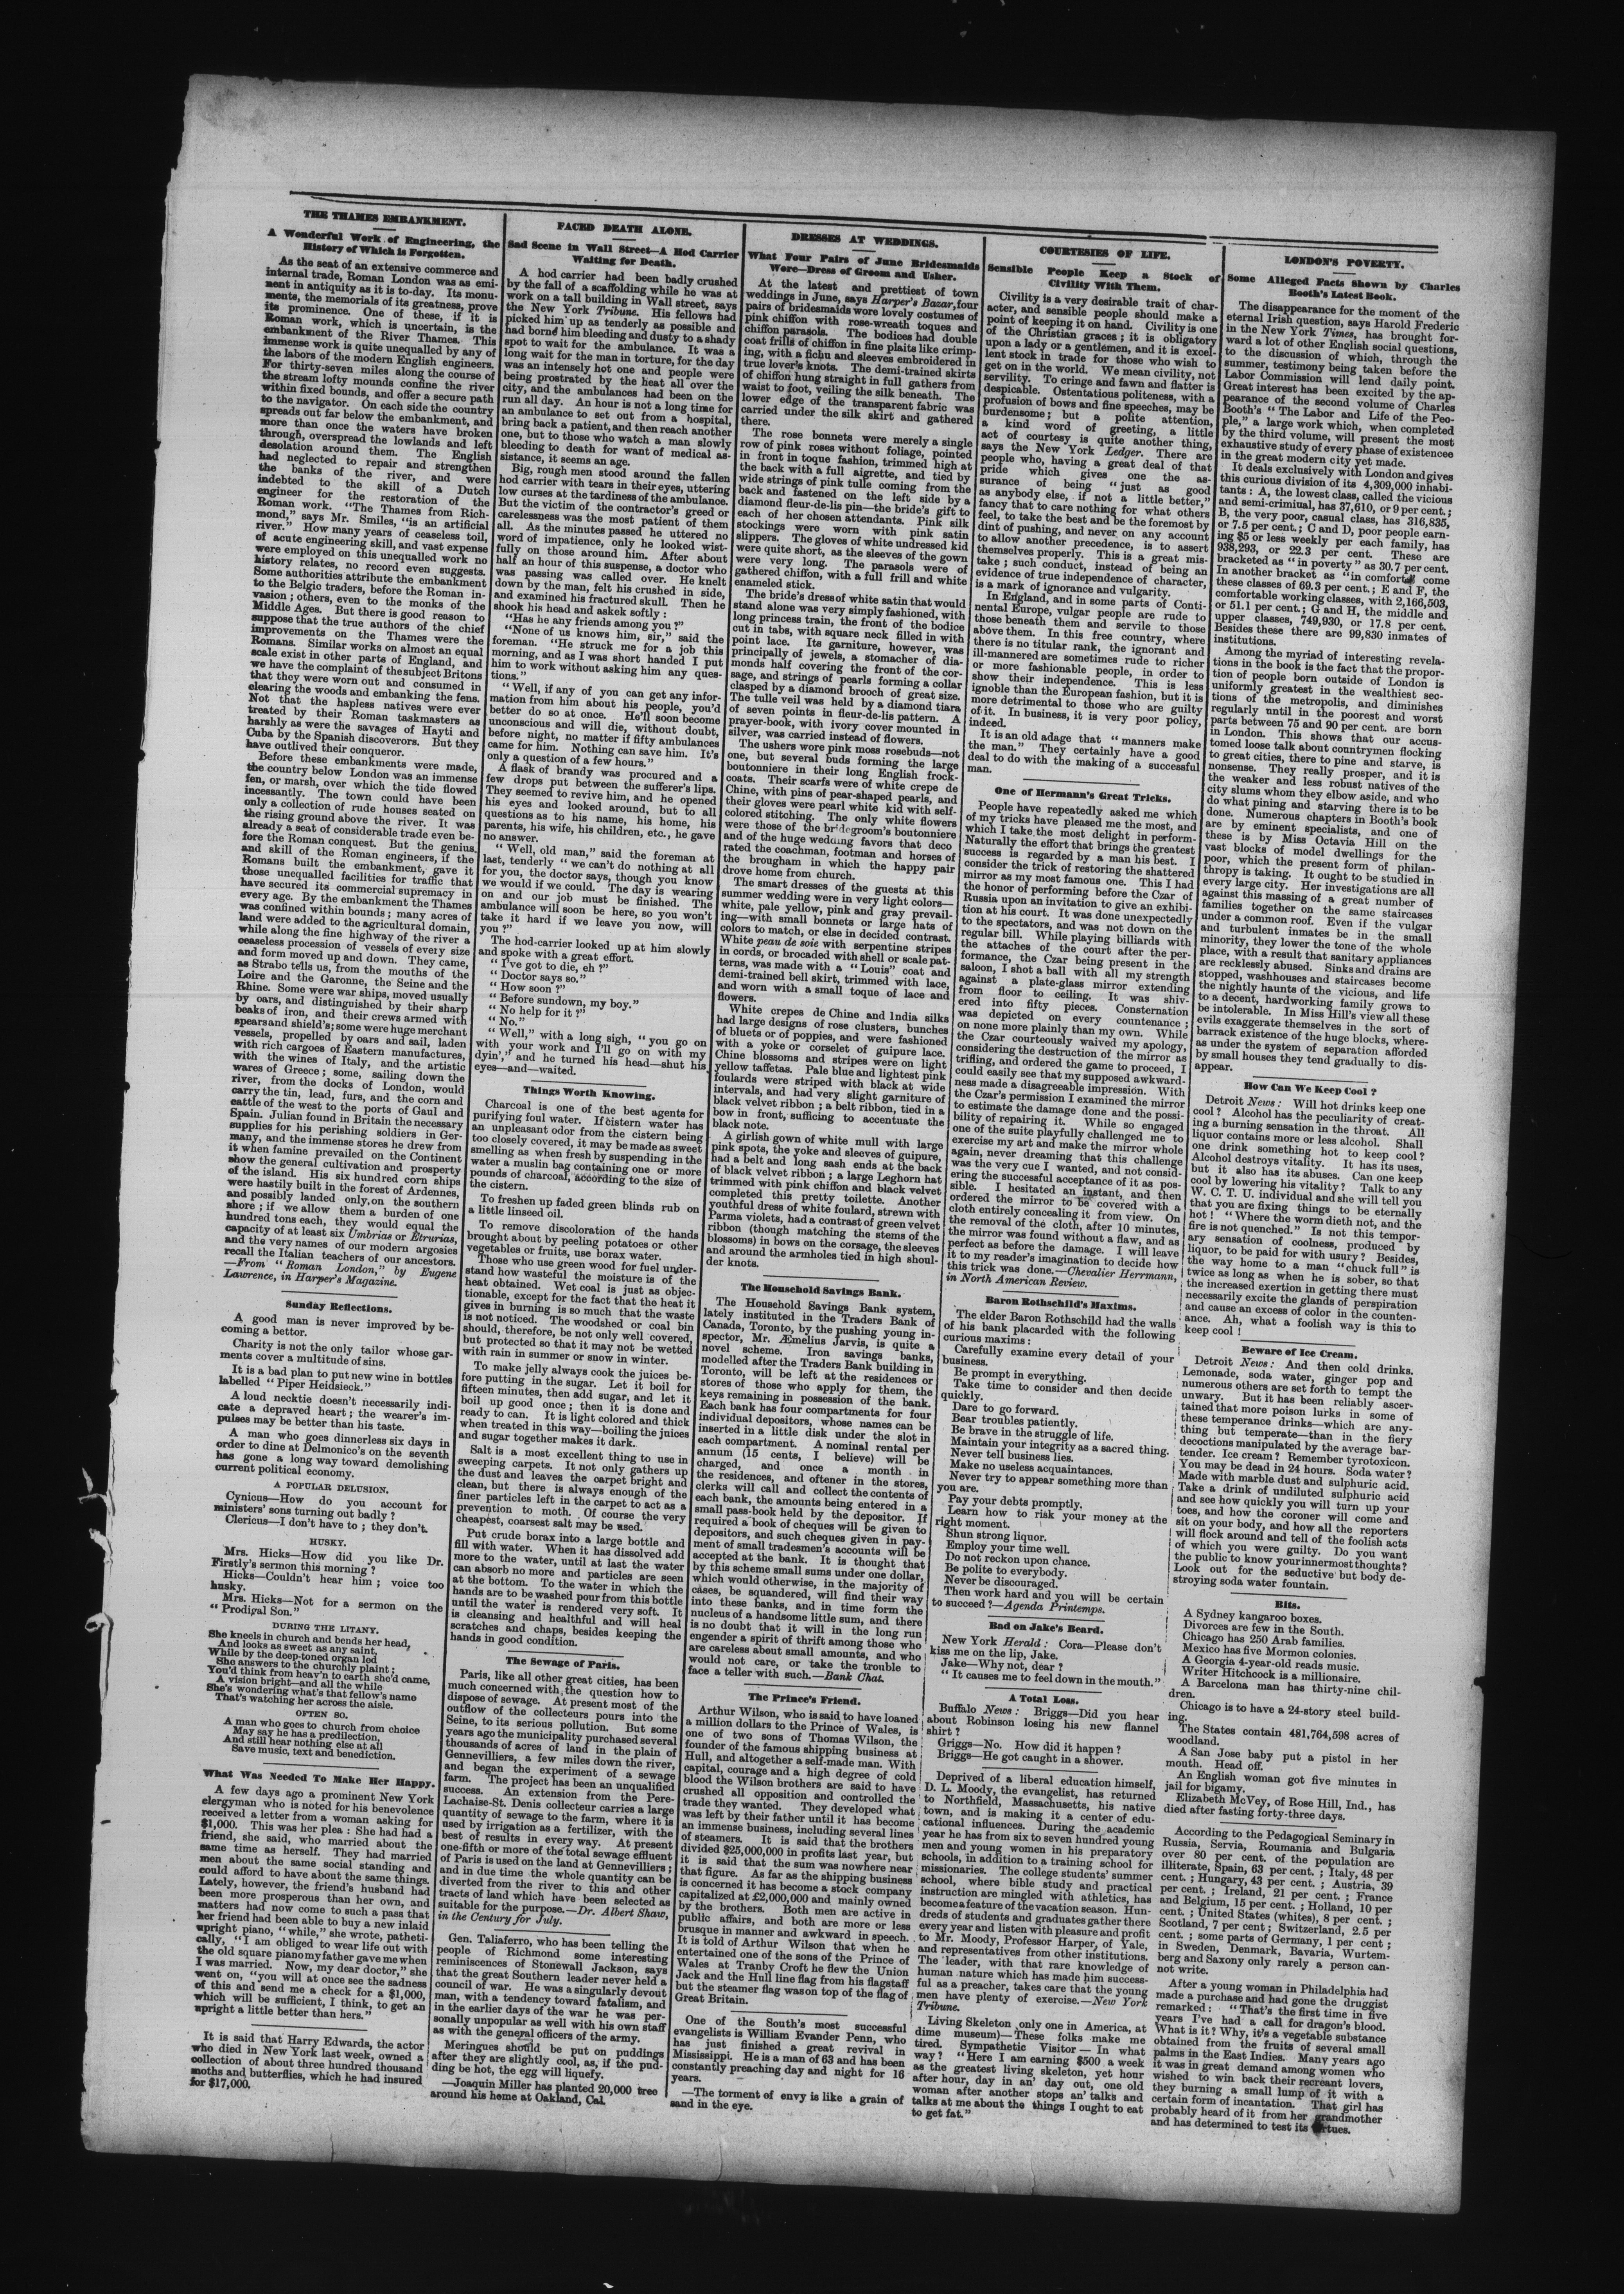 THE THAMES EMBANKMENT.
A Wonderful Work of Engineering, the
History of Which is Forgotten.
As the seat of an extensive commerce and
internal trade, Roman London was as emi-
nent in antiquity as it is to-day. Its monu-
ments, the memorials of its greatness, prove
its prominence. One of these, if it is
Roman work, which is uncertain, is the
embankment of the River Thames. This
immense work is quite unequalled by any of
the labors of the modern English engineers.
For thirty-seven miles along the course of
the stream lofty mounds confine the river
within fixed bounds, and offer a secure path
to the navigator. On each side the country
spreads out far below the embankment, and
more than once the waters have broken
through, overspread the lowlands and left
desolation around them. The English
had neglected to repair and strengthen
the banks of the river, and were
indebted to the skill of a Dutch
engineer for the restoration of the
Roman work. "The Thames from Rich-
mond," says Mr. Smiles, "is an artificial
river." How many years of ceaseless toil,
of acute engineering skill, and vast expense
were employed on this unequalled work no
history relates, no record even suggests.
Some authorities attribute the embankment
to the Belgic traders, before the Roman in-
vasion; others, even to the monks of the
Middle Ages. But there is good reason to
suppose that the true authors of the chief
improvements on the Thames were the
Romans. Similar works on almost an equal
scale exist in other parts of England, and
we have the complaint of the subject Britons
that they were worn out and consumed in
clearing the woods and embanking the fens.
Not that the hapless natives were ever
treated by their Roman taskmasters as
harshly as were the savages of Hayti and
Cuba by the Spanish discoverors. But they
have outlived their conqueror.
Before these embankments were made,
the country below London was an immense
fen, or marsh, over which the tide flowed
incessantly. The town could have been
only a collection of rude houses seated on
the rising ground above the river. It was
already a seat of considerable trade even be-
fore the Roman conquest. But the genius,
and skill of the Roman engineers, if the
Romans built the embankment, gave it
those unequalled facilities for traffic that
have secured its commercial supremacy in
every age. By the embankment the Thames
was confined within bounds; many acres of
land were added to the agricultural domain,
while along the fine highway of the river a
ceaseless procession of vessels of every size
and form moved up and down. They came,
as Strabo tells us, from the mouths of the
Loire and the Garonne, the Seine and the
Rhine. Some were war ships, moved usually
by oars, and distinguished by their sharp
beaks of iron, and their crews armed with
spears and shield's; some were huge merchant
vessels, propelled by oars and sail, laden
with rich cargoes of Eastern manufactures,
with the wines of Italy, and the artistic
wares of Greece; some, sailing down the
river, from the docks of London, would
carry the tin, lead, furs, and the corn and
cattle of the west to the ports of Gaul and
Spain. Julian found in Britain the necessary
supplies for his perishing soldiers in Ger-
many, and the immense stores he drew from
it when famine prevailed on the Continent
show the general cultivation and prosperty
of the island. His six hundred corn ships
were hastily built in the forest of Ardennes,
and possibly landed only on the southern
shore; if we allow them a burden of one
hundred tons each, they would equal the
capacity of at least six Umbrias or Etrurias,
and the very names of our modern argosies
recall the Italian teachers of our ancestors.
—From "Roman London," by Eugene
Lawrence, in Harper's Magazine.
Sunday Reflections.
A good man is never improved by be-
coming a bettor.
Charity is not the only tailor whose gar-
ments cover a multitude of sins.
It is a bad plan to put new wine in bottles
labelled "Piper Heidsieck."
A loud necktie doesn't necessarily indi-
cate a depraved heart; the wearer's im-
pulses may be better than his taste.
A man who goes dinnerless six days in
order to dine at Delmonico's on the seventh
has gone a long way toward demolishing
current political economy.
A POPULAR DELUSION.
Cynicus—How do you account for
ministers' sons turning out badly?
Clericus—I don't have to; they don't.
HUSKY.
Mrs. Hicks—How did you like Dr.
Firstly's sermon this morning?
Hicks—Couldn't hear him; voice too
husky.
Mrs. Hicks—Not for a sermon on the
"Prodigal Son."
DURING THE LITANY.
She kneels in church and bends her head,
And looks as sweet as any saint,
While by the deep-toned organ led
She answers to the churchly plaint;
You'd think from heav'n to earth she'd came,
A vision bright—and all the while
She's wondering what's that fellow's name
That's watching her across the aisle.
OFTEN SO.
A man who goes to church from choice
May say he has a predilection,
And still hear nothing else at all
Save music, text and benediction.
What Was Needed To Make Her Happy.
A few days ago a prominent New York
clergyman who is noted for his benevolence
received a letter from a woman asking for
$1,000. This was her plea: She had had a
friend, she said, who married about the
same time as herself. They had married
men about the same social standing and
could afford to have about the same things.
Lately, however, the friend's husband had
been more prosperous than her own, and
matters had now come to such a pass that
her friend had been able to buy a new inlaid
upright piano, "while," she wrote, patheti-
cally, "I am obliged to wear life out with
the old square piano my father gave me when
I was married. Now, my dear doctor," she
went on, "you will at once see the sadness
of this and send me a check for a $1,000,
which will be sufficient, I think, to get an
upright a little better than hers."
It is said that Harry Edwards, the actor
who died in New York last week, owned a
collection of about three hundred thousand
moths and butterflies, which he had insured
for $17,000.
FACED DEATH ALONE.
Sad Scene in Wall Street—A Hod Carrier
Waiting for Death.
A hod carrier had been badly crushed
by the fall of a scaffolding while he was at
work on a tall building in Wall street, says
the New York Tribune. His fellows had
picked him up as tenderly as possible and
had borne him bleeding and dusty to a shady
spot to wait for the ambulance. It was a
long wait for the man in torture, for the day
was an intensely hot one and people were
being prostrated by the heat all over the
city, and the ambulances had been on the
run all day. An hour is not a long time for
an ambulance to set out from a hospital,
bring back a patient, and then reach another
one, but to those who watch a man slowly
bleeding to death for want of medical as-
sistance, it seems an age.
Big, rough men stood around the fallen
hod carrier with tears in their eyes, uttering
low curses at the tardiness of the ambulance.
But the victim of the contractor's greed or
carelessness was the most patient of them
all. As the minutes passed he uttered no
word of impatience, only he looked wist-
fully on those around him. After about
half an hour of this suspense, a doctor who
was passing was called over. He knelt
down by the man, felt his crushed in side,
and examined his fractured skull. Then he
shook his head and askek softly:
"Has he any friends among you?"
"None of us knows him, sir," said the
foreman. "He struck me for a job this
morning, and as I was short handed I put
him to work without asking him any ques-
tions."
"Well, if any of you can get any infor-
mation from him about his people, you'd
better do so at once. He'll soon become
unconscious and will die, without doubt,
before night, no matter if fifty ambulances
came for him. Nothing can save him. It's
only a question of a few hours."
A flask of brandy was procured and a
few drops put between the sufferer's lips.
They seemed to revive him, and he opened
his eyes and looked around, but to all
questions as to his name, his home, his
parents, his wife, his children, etc., he gave
no answer.
"Well, old man," said the foreman at
last, tenderly "we can't do nothing at all
for you, the doctor says, though you know
we would if we could. The day is wearing
on and our job must be finished. The
ambulance will soon be here, so you won't
take it hard if we leave you now, will
you?"
The hod-carrier looked up at him slowly
and spoke with a great effort.
"I've got to die, eh?"
"Doctor says so."
"How soon?"
"Before sundown, my boy."
"No help for it?"
"No."
"Well," with a long sigh, "you go on
with your work and I'll go on with my
dyin'," and he turned his head—shut his
eyes—and—waited.
Things Worth Knowing.
Charcoal is one of the best agents for
purifying foul water. If cistern water has
an unpleasant odor from the cistern being
too closely covered, it may be made as sweet
smelling as when fresh by suspending in the
water a muslin bag containing one or more
pounds of charcoal, according to the size of
the cistern.
To freshen up faded green blinds rub on
a little linseed oil.
To remove discoloration of the hands
brought about by peeling potatoes or other
vegetables or fruits, use borax water.
Those who use green wood for fuel under-
stand how wasteful the moisture is of the
heat obtained. Wet coal is just as objec-
tionable, except for the fact that the heat it
gives in burning is so much that the waste
is not noticed. The woodshed or coal bin
should, therefore, be not only well covered,
but protected so that it may not be wetted
with rain in summer or snow in winter.
To make jelly always cook the juices be-
fore putting in the sugar. Let it boil for
fifteen minutes, then add sugar, and let it
boil up good once; then it is done and
ready to can. It is light colored and thick
when treated in this way—boiling the juices
and sugar together makes it dark.
Salt is a most excellent thing to use in
sweeping carpets. It not only gathers up
the dust and leaves the carpet bright and
clean, but there is always enough of the
finer particles left in the carpet to act as a
prevention to moth. Of course the very
cheapest, coarsest salt may be used.
Put crude borax into a large bottle and
fill with water. When it has dissolved add
more to the water, until at last the water
can absorb no more and particles are seen
at the bottom. To the water in which the
hands are to be washed pour from this bottle
until the water is rendered very soft. It
is cleansing and healthful and will heal
scratches and chaps, besides keeping the
hands in good condition.
The Sewage of Paris.
Paris, like all other great cities, has been
much concerned with the question how to
dispose of sewage. At present most of the
outflow of the collecteurs pours into the
Seine, to its serious pollution. But some
years ago the municipality purchased several
thousands of acres of land in the plain of
Gennevilliers, a few miles down the river,
and began the experiment of a sewage
farm. The project has been an unqualified
success. An extension from the Pere-
Lachaise-St. Denis collecteur carries a large
quantity of sewage to the farm, where it is
used by irrigation as a fertilizer, with the
best of results in every way. At present
one-fifth or more of the total sewage effluent
of Paris is used on the land at Gennevilliers;
and in due time the whole quantity can be
diverted from the river to this and other
tracts of land which have been selected as
suitable for the purpose.—Dr. Albert Shaw,
in the Century for July.
Gen. Taliaferro, who has been telling the
people of Richmond some interesting
reminiscences of Stonewall Jackson, says
that the great Southern leader never held a
council of war. He was a singularly devout
man, with a tendency toward fatalism, and
in the earlier days of the war he was per-
sonally unpopular as well with his own staff
as with the general officers of the army.
Meringues should be put on puddings
after they are slightly cool, as, if the pud-
ding be hot, the egg will liquefy.
—Joaquin Miller has planted 20,000 tree
around his home at Oakland, Cal.
DRESSES AT WEDDINGS.
What Four Pairs of June Bridesmaids
Wore—Dress of Groom and Usher.
At the latest and prettiest of town
weddings in June, says Harper's Bazar, four
pairs of bridesmaids wore lovely costumes of
pink chiffon with rose-wreath toques and
chiffon parasols. The bodices had double
coat frills of chiffon in fine plaits like crimp-
ing, with a fichu and sleeves embroidered in
true lover's knots. The demi-trained skirts
of chiffon hung straight in full gathers from
waist to foot, veiling the silk beneath. The
lower edge of the transparent fabric was
carried under the silk skirt and gathered
there.
The rose bonnets were merely a single
row of pink roses without foliage, pointed
in front in toque fashion, trimmed high at
the back with a full aigrette, and tied by
wide strings of pink tulle coming from the
back and fastened on the left side by a
diamond fleur-de-lis pin—the bride's gift to
each of her chosen attendants. Pink silk
stockings were worn with pink satin
slippers. The gloves of white undressed kid
were quite short, as the sleeves of the gown
were very long. The parasols were of
gathered chiffon, with a full frill and white
enameled stick.
The bride's dress of white satin that would
stand alone was very simply fashioned, with
long princess train, the front of the bodice
cut in tabs, with square neck filled in with
point lace. Its garniture, however, was
principally of jewels, a stomacher of dia-
monds half covering the front of the cor-
sage, and strings of pearls forming a collar
clasped by a diamond brooch of great size.
The tulle veil was held by a diamond tiara
of seven points in fleur-de-lis pattern. A
prayer-book, with ivory cover mounted in
silver, was carried instead of flowers.
The ushers wore pink moss rosebuds—not
one, but several buds forming the large
boutonniere in their long English frock-
coats. Their scarfs were of white crepe de
Chine, with pins of pear-shaped pearls, and
their gloves were pearl white kid with self-
colored stitching. The only white flowers
were those of the bridegroom's boutonniere
and of the huge wedding favors that deco
rated the coachman, footman and horses of
the brougham in which the happy pair
drove home from church.
The smart dresses of the guests at this
summer wedding were in very light colors—
white, pale yellow, pink and gray prevail-
ing—with small bonnets or large hats of
colors to match, or else in decided contrast.
White peau de soie with serpentine stripes
in cords, or brocaded with shell or scale pat-
terns, was made with a "Louis" coat and
demi-trained bell skirt, trimmed with lace,
and worn with a small toque of lace and
flowers.
White crepes de Chine and India silks
had large designs of rose clusters, bunches
of bluets or of poppies, and were fashioned
with a yoke or corselet of guipure lace.
Chine blossoms and stripes were on light
yellow taffetas. Pale blue and lightest pink
foulards were striped with black at wide
intervals, and had very slight garniture of
black velvet ribbon; a belt ribbon, tied in a
bow in front, sufficing to accentuate the
black note.
A girlish gown of white mull with large
pink spots, the yoke and sleeves of guipure,
had a belt and long sash ends at the back
of black velvet ribbon; a large Leghorn hat
trimmed with pink chiffon and black velvet
completed this pretty toilette. Another
youthful dress of white foulard, strewn with
Parma violets, had a contrast of green velvet
ribbon (though matching the stems of the
blossoms) in bows on the corsage, the sleeves
and around the armholes tied in high shoul-
der knots.
The Household Savings Bank.
The Household Savings Bank system,
lately instituted in the Traders Bank of
Canada, Toronto, by the pushing young in-
spector, Mr. Æmelius Jarvis, is quite a
novel scheme. Iron savings banks,
modelled after the Traders Bank building in
Toronto, will be left at the residences or
stores of those who apply for them, the
keys remaining in possession of the bank.
Each bank has four compartments for four
individual depositors, whose names can be
inserted in a little disk under the slot in
each compartment. A nominal rental per
annum (15 cents, I believe) will be
charged, and once a month in
the residences, and oftener in the stores,
clerks will call and collect the contents of
each bank, the amounts being entered in a
small pass-book held by the depositor. If
required a book of cheques will be given to
depositors, and such cheques given in pay-
ment of small tradesmen's accounts will be
accepted at the bank. It is thought that
by this scheme small sums under one dollar,
which would otherwise, in the majority of
cases, be squandered, will find their way
into these banks, and in time form the
nucleus of a handsome little sum, and there
is no doubt that it will in the long run
engender a spirit of thrift among those who
are careless about small amounts, and who
would not care, or take the trouble to
face a teller with such.—Bank Chat.
The Prince's Friend.
Arthur Wilson, who is said to have loaned
a million dollars to the Prince of Wales, is
one of two sons of Thomas Wilson, the
founder of the famous shipping business at
Hull, and altogether a self-made man. With
capital, courage and a high degree of cold
blood the Wilson brothers are said to have
crushed all opposition and controlled the
trade they wanted. They developed what
was left by their father until it has become
an immense business, including several lines
of steamers. It is said that the brothers
divided $25,000,000 in profits last year, but
it is said that the sum was nowhere near
that figure. As far as the shipping business
is concerned it has become a stock company
capitalized at £2,000,000 and mainly owned
by the brothers. Both men are active in
public affairs, and both are more or less
brusque in manner and awkward in speech.
It is told of Arthur Wilson that when he
entertained one of the sons of the Prince of
Wales at Tranby Croft he flew the Union
Jack and the Hull line flag from his flagstaff
but the steamer flag was on top of the flag of
Great Britain.
One of the South's most successful
evangelists is William Evander Penn, who
has just finished a great revival in
Mississippi. He is a man of 63 and has been
constantly preaching day and night for 16
years.
—The torment of envy is like a grain of
sand in the eye.
COURTESIES OF LIFE.
Sensible People Keep a Stock of
Civility With Them.
Civility is a very desirable trait of char-
acter, and sensible people should make a
point of keeping it on hand. Civility is one
of the Christian graces; it is obligatory
upon a lady or a gentlemen, and it is excel-
lent stock in trade for those who wish to
get on in the world. We mean civility, not
servility. To cringe and fawn and flatter is
despicable. Ostentatious politeness, with a
profusion of bows and fine speeches, may be
burdensome; but a polite attention,
a kind word of greeting, a little
act of courtesy is quite another thing,
says the New York Ledger. There are
people who, having a great deal of that
pride which gives one the as-
surance of being "just as good
as anybody else, if not a little better,"
fancy that to care nothing for what others
feel, to take the best and be the foremost by
dint of pushing, and never on any account
to allow another precedence, is to assert
themselves properly. This is a great mis-
take; such conduct, instead of being an
evidence of true independence of character,
is a mark of ignorance and vulgarity.
In England, and in some parts of Conti-
nental Europe, vulgar people are rude to
those beneath them and servile to those
above them. In this free country, where
there is no titular rank, the ignorant and
ill-mannered are sometimes rude to richer
or more fashionable people, in order to
show their independence. This is less
ignoble than the European fashion, but it is
more detrimental to those who are guilty
of it. In business, it is very poor policy,
indeed.
It is an old adage that "manners make
the man." They certainly have a good
deal to do with the making of a successful
man.
One of Hermann's Great Tricks.
People have repeatedly asked me which
of my tricks have pleased me the most, and
which I take the most delight in perform-
Naturally the effort that brings the greatest
success is regarded by a man his best. I
consider the trick of restoring the shattered
mirror as my most famous one. This I had
the honor of performing before the Czar of
Russia upon an invitation to give an exhibi-
tion at his court. It was done unexpectedly
to the spectators, and was not down on the
regular bill. While playing billiards with
the attaches of the court after the per-
formance, the Czar being present in the
saloon, I shot a ball with all my strength
against a plate-glass mirror extending
from floor to ceiling. It was shiv-
ered into fifty pieces. Consternation
was depicted on every countenance;
on none more plainly than my own. While
the Czar courteously waived my apology,
considering the destruction of the mirror as
trifling, and ordered the game to proceed, I
could easily see that my supposed awkward-
ness made a disagreeable impression. With
the Czar's permission I examined the mirror
to estimate the damage done and the possi-
bility of repairing it. While so engaged
one of the suite playfully challenged me to
exercise my art and make the mirror whole
again, never dreaming that this challenge
was the very cue I wanted, and not consid-
ering the successful acceptance of it as pos-
sible. I hesitated an instant, and then
ordered the mirror to be covered with a
cloth entirely concealing it from view. On
the removal of the cloth, after 10 minutes,
the mirror was found without a flaw, and as
perfect as before the damage. I will leave
it to my reader's imagination to decide how
this trick was done.—Chevalier Herrmann,
in North American Review.
Baron Rothschild's Maxims.
The elder Baron Rothschild had the walls
of his bank placarded with the following
curious maxims:
Carefully examine every detail of your
business.
Be prompt in everything.
Take time to consider and then decide
quickly.
Dare to go forward.
Bear troubles patiently.
Be brave in the struggle of life.
Maintain your integrity as a sacred thing.
Never tell business lies.
Make no useless acquaintances.
Never try to appear something more than
you are.
Pay your debts promptly.
Learn how to risk your money at the
right moment.
Shun strong liquor.
Employ your time well.
Do not reckon upon chance.
Be polite to everybody.
Never be discouraged.
Then work hard and you will be certain
to succeed?—Agenda Printemps.
Bad on Jake's Beard.
New York Herald: Cora—Please don't
kiss me on the lip, Jake.
Jake—Why not, dear?
"It causes me to feel down in the mouth."
A Total Loss.
Buffalo News: Briggs—Did you hear
about Robinson losing his new flannel
shirt?
Griggs—No. How did it happen?
Briggs—He got caught in a shower.
Deprived of a liberal education himself,
D. L. Moody, the evangelist, has returned
to Northfield, Massachusetts, his native
town, and is making it a center of edu-
cational influences. During the academic
year he has from six to seven hundred young
men and young women in his preparatory
schools, in addition to a training school for
missionaries. The college students' summer
school, where bible study and practical
instruction are mingled with athletics, has
become a feature of the vacation season. Hun-
dreds of students and graduates gather there
every year and listen with pleasure and profit
to Mr. Moody, Professor Harper, of Yale,
and representatives from other institutions.
The leader, with that rare knowledge of
human nature which has made him success-
ful as a preacher, takes care that the young
men have plenty of exercise.—New York
Tribune.
Living Skeleton only one in America, at
dime museum)—These folks make me
tired. Sympathetic Visitor—In what
way? "Here I am earning $500 a week
as the greatest living skeleton, yet hour
after hour, day in an' day out, one old
woman after another stops an' talks and
talks at me about the things I ought to eat
to get fat."
LONDON'S POVERTY.
Some Alleged Facts Shown by Charles
Booth's Latest Book.
The disappearance for the moment of the
eternal Irish question, says Harold Frederic
in the New York Times, has brought for-
ward a lot of other English social questions,
to the discussion of which, through the
summer, testimony being taken before the
Labor Commission will lend daily point.
Great interest has been excited by the ap-
pearance of the second volume of Charles
Booth's "The Labor and Life of the Peo-
ple," a large work which, when completed
by the third volume, will present the most
exhaustive study of every phase of existencee
in the great modern city yet made.
It deals exclusively with London and gives
this curious division of its 4,309,000 inhabi-
tants: A, the lowest class, called the vicious
and semi-crimiual, has 37,610, or 9 per cent.;
B, the very poor, casual class, has 316,835,
or 7.5 per cent.; C and D, poor people earn-
ing $5 or less weekly per each family, has
938,293, or 22.3 per cent. These are
bracketed as "in poverty" as 30.7 per cent.
In another bracket as "in comfort" come
these classes of 69.3 per cent.; E and F, the
comfortable working classes, with 2,166,503,
or 51.1 per cent.; G and H, the middle and
upper classes, 749,930, or 17.8 per cent.
Besides these there are 99,830 inmates of
institutions.
Among the myriad of interesting revela-
tions in the book is the fact that the propor-
tion of people born outside of London is
uniformly greatest in the wealthiest sec-
tions of the metropolis, and diminishes
regularly until in the poorest and worst
parts between 75 and 90 per cent. are born
in London. This shows that our accus-
tomed loose talk about countrymen flocking
to great cities, there to pine and starve, is
nonsense. They really prosper, and it is
the weaker and less robust natives of the
city slums whom they elbow aside, and who
do what pining and starving there is to be
done. Numerous chapters in Booth's book
are by eminent specialists, and one of
these is by Miss Octavia Hill on the
vast blocks of model dwellings for the
poor, which the present form of philan-
thropy is taking. It ought to be studied in
every large city. Her investigations are all
against this massing of a great number of
families together on the same staircases
under a common roof. Even if the vulgar
and turbulent inmates be in the small
minority, they lower the tone of the whole
place, with a result that sanitary appliances
are recklessly abused. Sinks and drains are
stopped, washhouses and staircases become
the nightly haunts of the vicious, and life
to a decent, hardworking family grows to
be intolerable. In Miss Hill's view all these
evils exaggerate themselves in the sort of
barrack existence of the huge blocks, where-
as under the system of separation afforded
by small houses they tend gradually to dis-
appear.
How Can We Keep Cool?
Detroit News: Will hot drinks keep one
cool? Alcohol has the peculiarity of creat-
ing a burning sensation in the throat. All
liquor contains more or less alcohol. Shall
one drink something hot to keep cool?
Alcohol destroys vitality. It has its uses,
but it also has its abuses. Can one keep
cool by lowering his vitality? Talk to any
W. C. T. U. individual and she will tell you
that you are fixing things to be eternally
hot! "Where the worm dieth not, and the
fire is not quenched." Is not this tempor-
ary sensation of coolness, produced by
liquor, to be paid for with usury? Besides,
the way home to a man "chuck full" is
twice as long as when he is sober, so that
the increased exertion in getting there must
necessarily excite the glands of perspiration
and cause an excess of color in the counten-
ance. Ah, what a foolish way is this to
keep cool!
Beware of Ice Cream.
Detroit News: And then cold drinks.
Lemonade, soda water, ginger pop and
numerous others are set forth to tempt the
unwary. But it has been reliably ascer-
tained that more poison lurks in some of
these temperance drinks—which are any-
thing but temperate—than in the fiery
decoctions manipulated by the average bar-
tender. Ice cream? Remember tyrotoxicon.
You may be dead in 24 hours. Soda water?
Made with marble dust and sulphuric acid.
Take a drink of undiluted sulphuric acid
and see how quickly you will turn up your
toes, and how the coroner will come and
sit on your body, and how all the reporters
will flock around and tell of the foolish acts
of which you were guilty. Do you want
the public to know your innermost thoughts?
Look out for the seductive but body de-
stroying soda water fountain.
Bits.
A Sydney kangaroo boxes.
Divorces are few in the South.
Chicago has 250 Arab families.
Mexico has five Mormon colonies.
A Georgia 4-year-old reads music.
Writer Hitchcock is a millionaire.
A Barcelona man has thirty-nine chil-
dren.
Chicago is to have a 24-story steel build-
ing.
The States contain 481,764,598 acres of
woodland.
A San Jose baby put a pistol in her
mouth. Head off.
An English woman got five minutes in
jail for bigamy.
Elizabeth McVey, of Rose Hill, Ind., has
died after fasting forty-three days.
According to the Pedagogical Seminary in
Russia, Servia, Roumania and Bulgaria
over 80 per cent. of the population are
illiterate, Spain, 63 per cent.; Italy, 48 per
cent.; Hungary, 43 per cent.; Austria, 39
per cent.; Ireland, 21 per cent.; France
and Belgium, 15 per cent.; Holland, 10 per
cent.; United States (whites), 8 per cent.;
Scotland, 7 per cent; Switzerland, 2.5 per
cent.; some parts of Germany, 1 per cent;
in Sweden, Denmark, Bavaria, Wurtem-
berg and Saxony only rarely a person can-
not write.
After a young woman in Philadelphia had
made a purchase and had gone the druggist
remarked: "That's the first time in five
years I've had a call for dragon's blood.
What is it? Why, it's a vegetable substance
obtained from the fruits of several small
palms in the East Indies. Many years ago
it was in great demand among women who
wished to win back their recreant lovers,
they burning a small lump of it with a
certain form of incantation. That girl has
probably heard of it from her grandmother
and has determined to test its virtues.